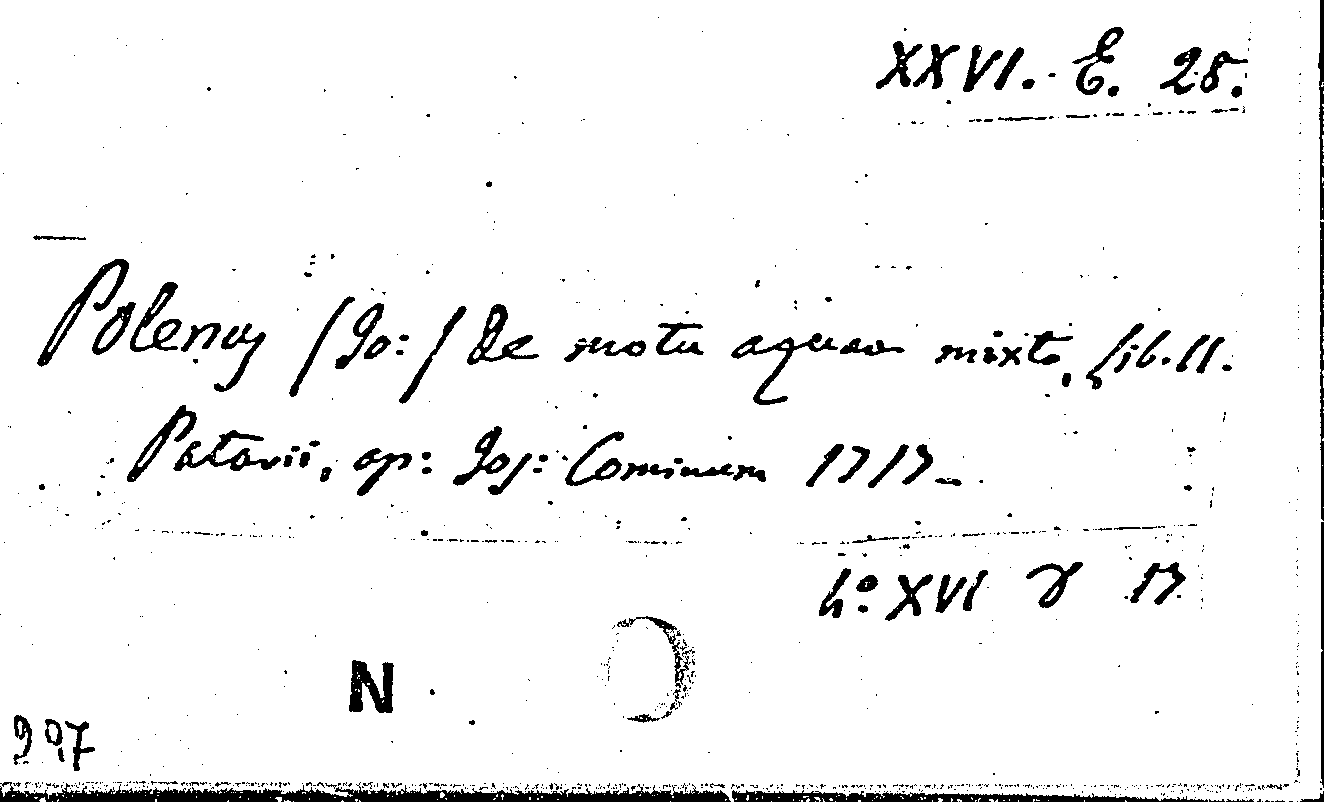 XXVI. E. 28.
Polenus /Jo:/ De motu aquae mixto, Lib. II.
Patavii, ap: Jos: Cominum 1717_
4º. XVI γ 17
N
997